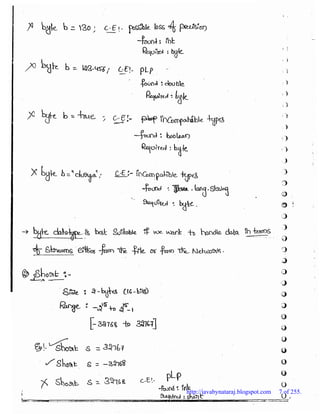 X byte b = 130 ; C.E!- possible loss of precision
-found : int
Required : byte.
X byte b = 123.456 ; C.E!- PLP
found : double
Required : byte
X byte b = true ; C.E!- incompatable types
-found : boolean
Required : byte
X byte b = "durga" ; C.E!- incompatable types
-found : java.lang.String
Required : byte.
→ byte datatype is best suitable if we want to handle data in terms
of streams either from the file or from the Network.
short :-
Size : 2-bytes (16-bits)
Range : -2^15 to 2^15-1
[-32768 to 32767]
Eg:- ✓ short s = 32767
✓ short s = -32768
X short s = 32768 C.E!- PLP
-found : int
Required : short
http://javabynataraj.blogspot.com 7 of 255.